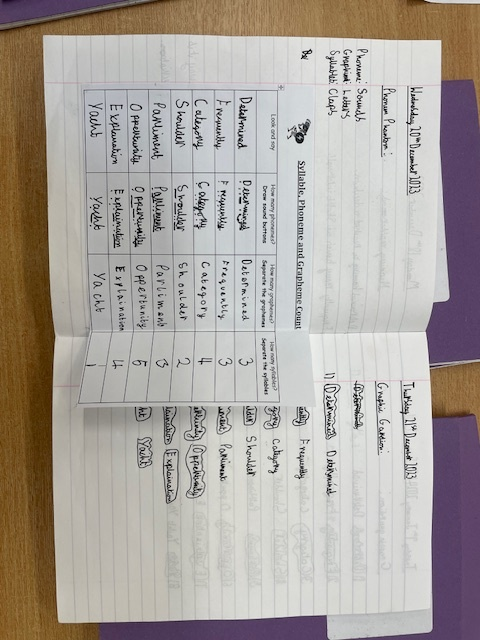 Wednesday 20th December 2023
Phonem Phantom:
Phoneme: Sounds
Grapheme: Letters
Syllables: Claps
Syllable, Phoneme and Grapheme Count
Look and say
How many phonemes? Draw sound buttons
How many graphemes? Separate the graphemes
How many syllables? Separate the syllables
Determined Determined Determined 3
Frequently Frequently Frequently 3
Category Category Category 4
Shoulder Shoulder Shoulder 2
Parliment Parliment Parliment 3
Oppertunity Oppertunity Oppertunity 5
Explaination Explaination Explaination 4
Yacht Yacht Yacht 1
Thursday 21st December 2023
1) Determined Determined
Frequently
Category
Shoulder
Parliment
Oppertunity
Explaination
Yacht